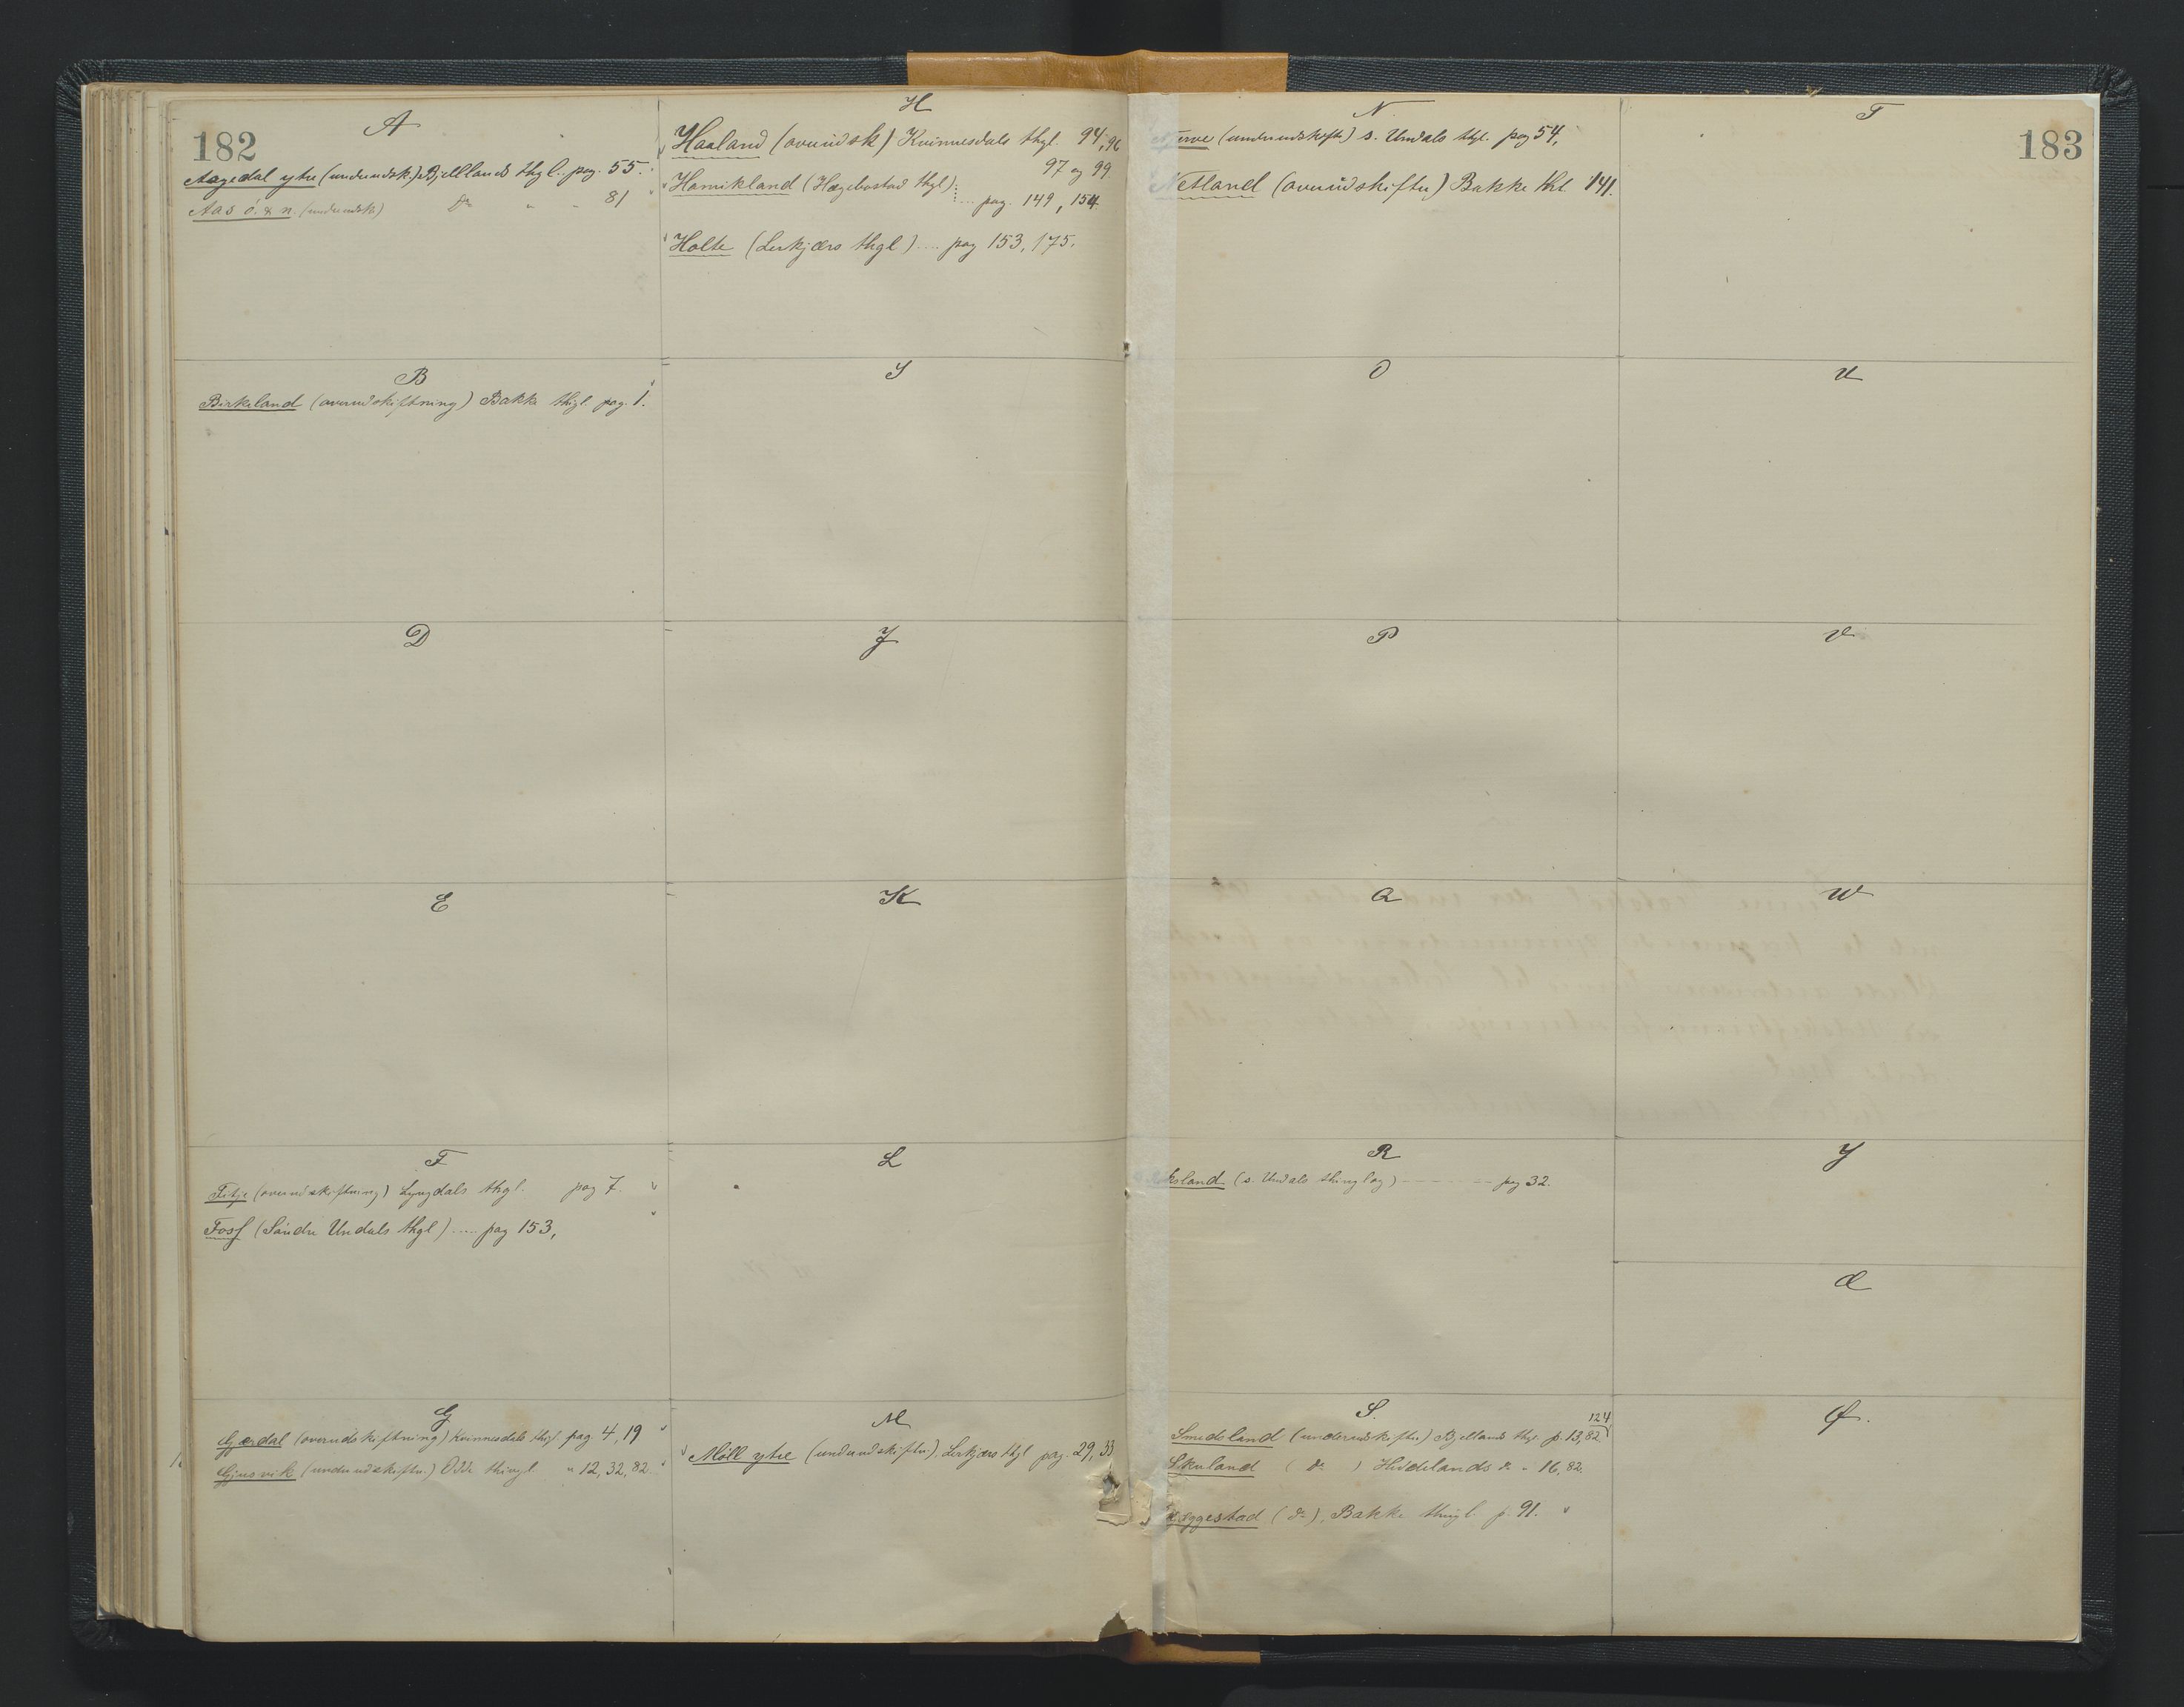 182
A
Aagedal ytre (underudsk.) Bjellands thgl. pag. 55.
Aas ó. & n. (underudsk) do " " 81
B
Birkeland (overudskiftning) Bakke thgl. pag. 1.
D
E
F
Fitje (overudskiftning) Lyngdals thgl. pag 7.
Foss (Söndre Undals thgl) .... pag 153,
G
Gjærdal (overudskiftning) Kvinnesdals thgl. pag 4, 19
Gjusvik (underudskiftn.) Odde thingl. " 12, 32, 82.
H
Haaland (overudsk) Kvinnesdals thgl. 94, 96
97 og 99
Hamikland (Hægebostad thgl) .... pag. 149, 154.
Holte (Leikjærs thgl) .... pag 153, 175.
I
J
K
L
M
Möll ytre (underudskiftn.) Leikjærs thgl pag. 29, 33
183
N
(underudskiftn) s. Undals thgl. pag 54,
Netland (overudskiftn) Bakke thl 141.
O
P
Q
R
ksland (s. Undals thinglag) ---- pag 32.
S.
124
Smedsland (underudskiftn.) Bjellands thgl. p. 13, 82
Skuland ( do ) Hidelands do " 16, 82.
æggestad (do), Bakke thingl. p. 91.
T
U
V
W
Y
Æ
Ø.